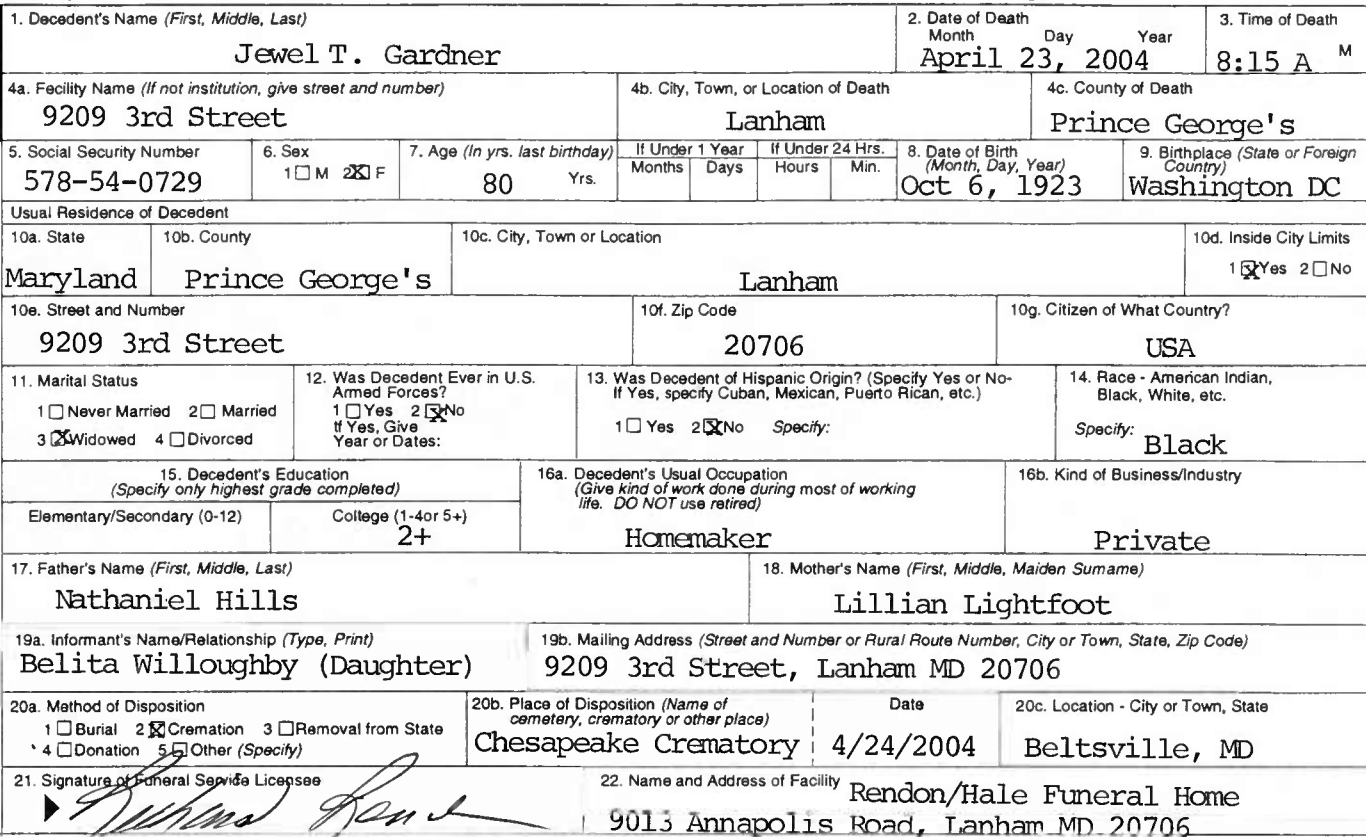 1. Decedent's Name (First, Middle, Last)
Jewel T. Gardner
2. Date of Death
Month Day Year
April 23, 2004
3. Time of Death
8:15 A M
4a. Fecility Name (If not institution, give street and number)
9209 3rd Street
4b. City, Town, or Location of Death
Lanham
4c. County of Death
Prince George's
5. Social Security Number
578-54-0729
6. Sex
1 ☐ M 2 ☒ F
7. Age (In yrs. last birthday)
80 Yrs.
If Under 1 Year
Months Days
If Under 24 Hrs.
Hours Min.
8. Date of Birth
(Month, Day, Year)
Oct 6, 1923
9. Birthplace (State or Foreign
Country)
Washington DC
Usual Residence of Decedent
10a. State
Maryland
10b. County
Prince George's
10c. City, Town or Location
Lanham
10d. Inside City Limits
1 ☒ Yes 2 ☐ No
10e. Street and Number
9209 3rd Street
10f. Zip Code
20706
10g. Citizen of What Country?
USA
11. Marital Status
1 ☐ Never Married 2 ☐ Married
3 ☒ Widowed 4 ☐ Divorced
12. Was Decedent Ever in U.S.
Armed Forces?
1 ☐ Yes 2 ☒ No
If Yes, Give
Year or Dates:
13. Was Decedent of Hispanic Origin? (Specify Yes or No-
If Yes, specify Cuban, Mexican, Puerto Rican, etc.)
1 ☐ Yes 2 ☒ No Specify:
14. Race - American Indian,
Black, White, etc.
Specify: Black
15. Decedent's Education
(Specify only highest grade completed)
Elementary/Secondary (0-12)
College (1-4or 5+)
2+
16a. Decedent's Usual Occupation
(Give kind of work done during most of working
life. DO NOT use retired)
Homemaker
16b. Kind of Business/Industry
Private
17. Father's Name (First, Middle, Last)
Nathaniel Hills
18. Mother's Name (First, Middle, Maiden Surname)
Lillian Lightfoot
19a. Informant's Name/Relationship (Type, Print)
Belita Willoughby (Daughter)
19b. Mailing Address (Street and Number or Rural Route Number, City or Town, State, Zip Code)
9209 3rd Street, Lanham MD 20706
20a. Method of Disposition
1 ☐ Burial 2 ☒ Cremation 3 ☐ Removal from State
4 ☐ Donation 5 ☐ Other (Specify)
20b. Place of Disposition (Name of
cemetery, crematory or other place)
Chesapeake Crematory
Date
4/24/2004
20c. Location - City or Town, State
Beltsville, MD
21. Signature of Funeral Service Licensee
22. Name and Address of Facility Rendon/Hale Funeral Home
9013 Annapolis Road, Lanham MD 20706